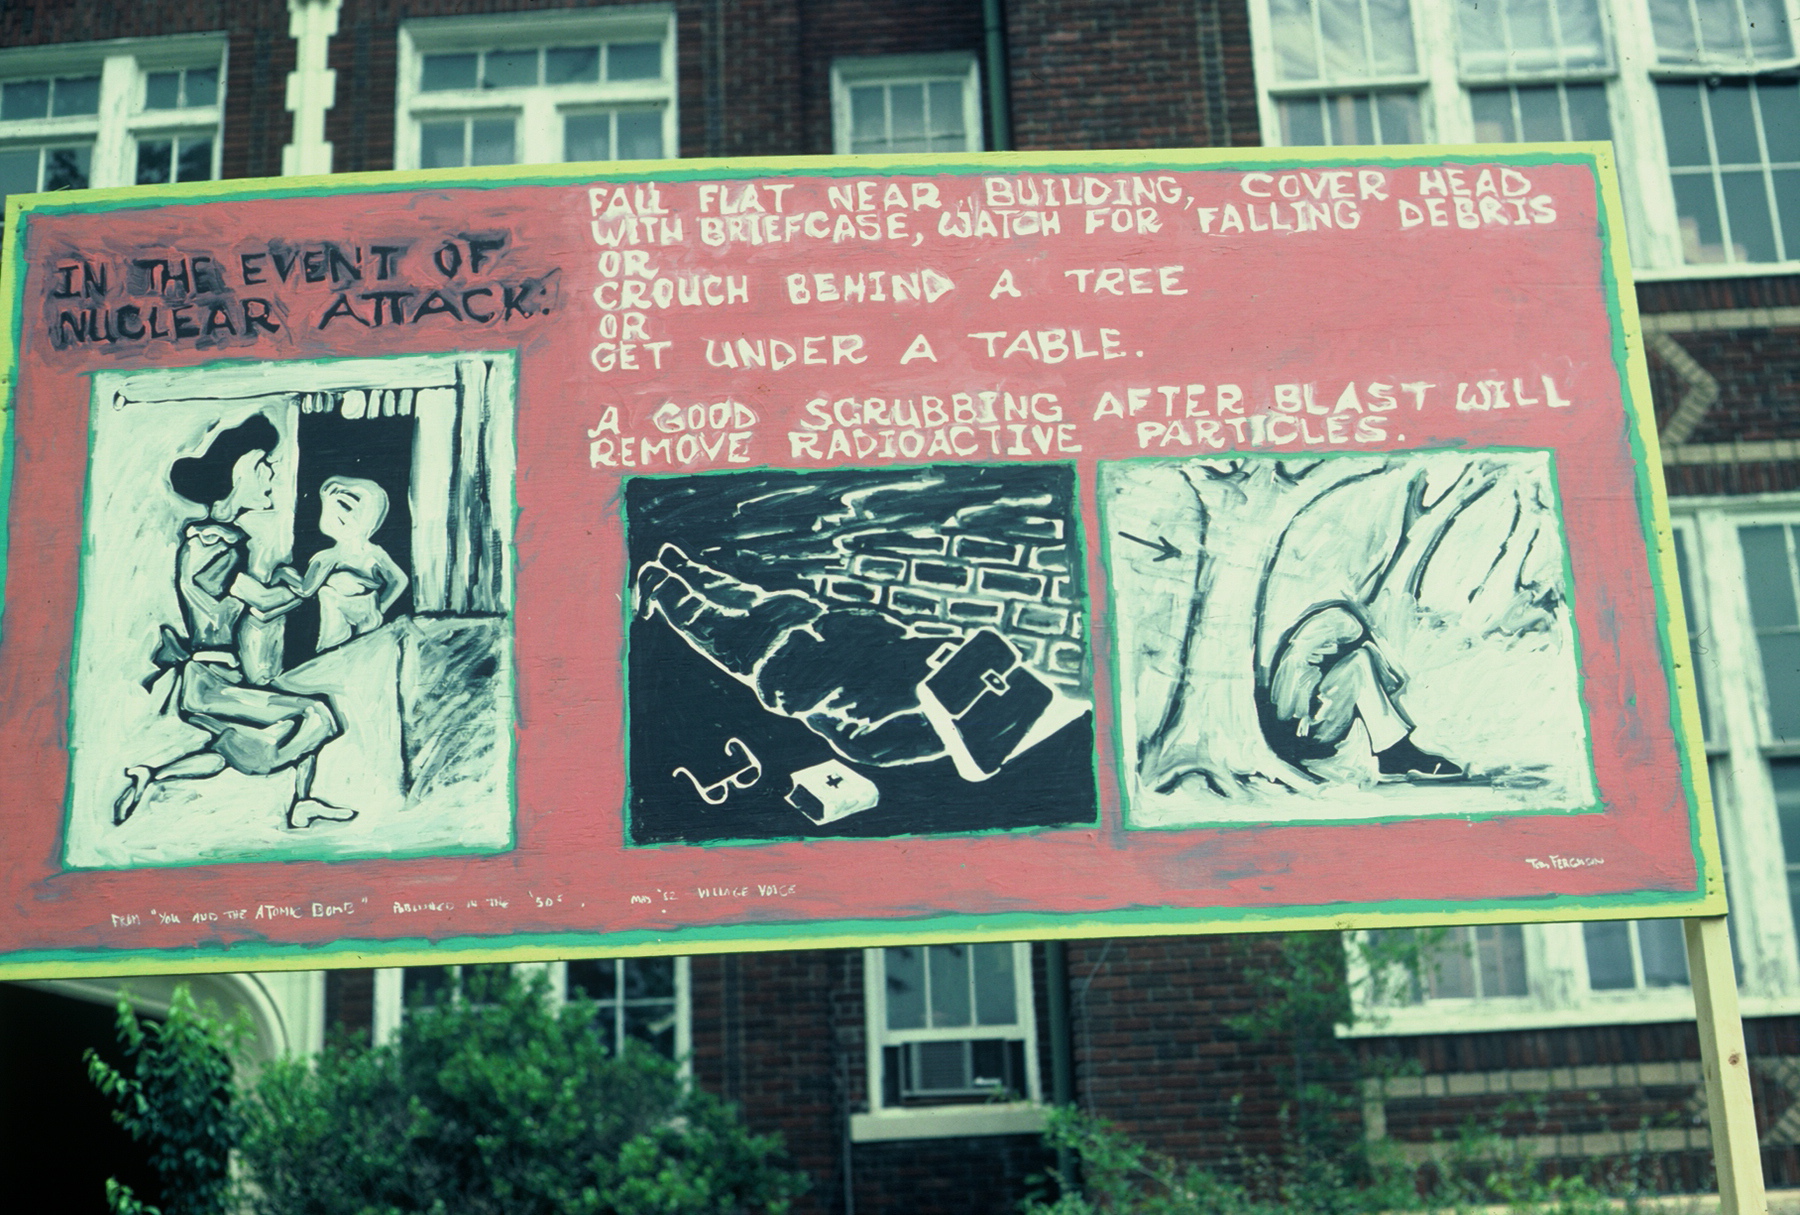 IN THE EVENT OF
NUCLEAR ATTACK:
FALL FLAT NEAR BUILDING, COVER HEAD
WITH BRIEFCASE, WATCH FOR FALLING DEBRIS
OR
CROUCH BEHIND A TREE
OR
GET UNDER A TABLE.
A GOOD SCRUBBING AFTER BLAST WILL
REMOVE RADIOACTIVE PARTICLES.
FROM "YOU AND THE ATOMIC BOMB" PUBLISHED IN THE '50s. VILLAGE VOICE
TOM FERGUSON